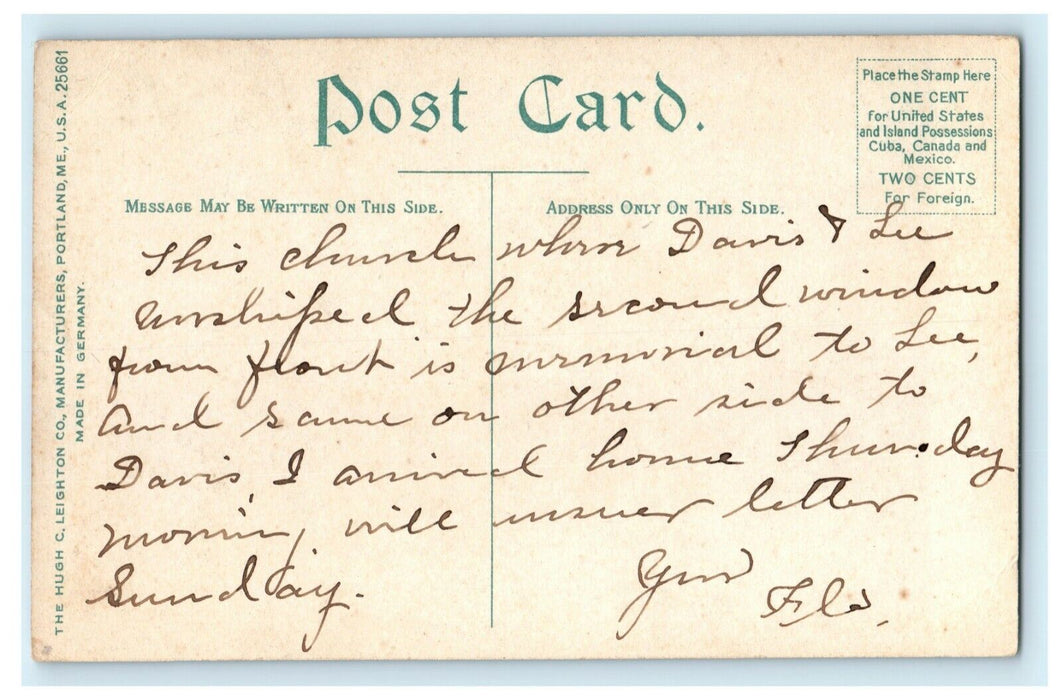 Post Card.
Place the Stamp Here
ONE CENT
For United States
and Island Possessions
Cuba, Canada and
Mexico.
TWO CENTS
For Foreign.
MESSAGE MAY BE WRITTEN ON THIS SIDE.
ADDRESS ONLY ON THIS SIDE.
This church where Davis & Lee
worshiped the second window
from front is memorial to Lee,
and same on other side to
Davis, I arrived home Thursday
morning, will answer letter
Sunday.
Your
Flo.
THE HUGH C. LEIGHTON CO., MANUFACTURERS, PORTLAND, ME., U.S.A. 25661
MADE IN GERMANY.